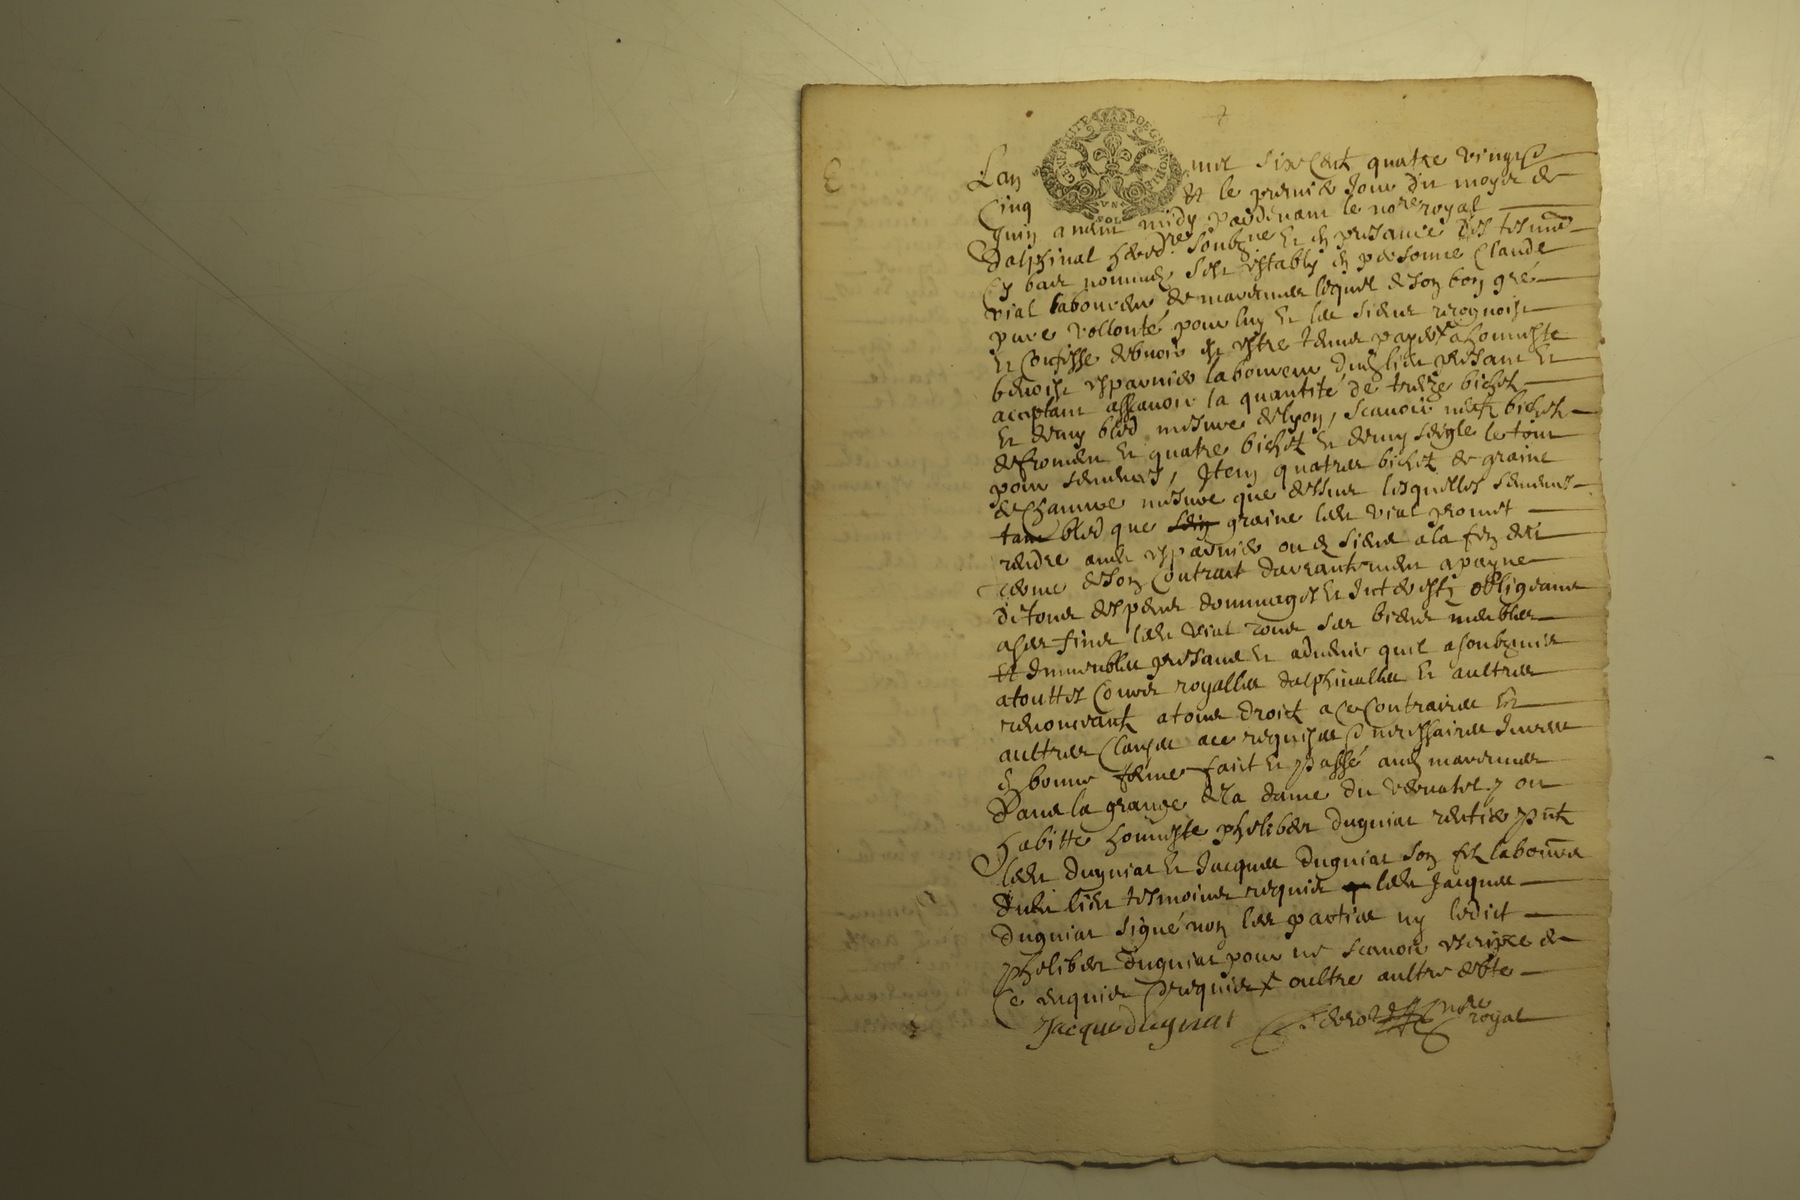 Lan mil six Cent quatre vingts
GENERALITE DE GRENOBLE
VN SOL
Cinq et le premier Jour du moys de
Juin avant midy pardevant le no.re royal
dalphinal hered.re soubz.ne Et en presance des tesmoins
Cy bas nommez sest establi en personne Claude
vial laboureur de lequel de son bon gré
pure vollonté pour luy Et les siens recognoist
Et Confesse debvoir et estre tenu payer a honneste
benoist laboureur dud lieu presant Et
aceptant assavoir la quantité de treize bichets
Et demy bled mesure de lyon, scavoir neuf bichets
de froment Et quatre bichet Et demy seigle le tout
pour semences, Item quatre bichet de graine
de chanvre mesure que dessus lesquelles semences
tant bled que graine led vial promet
rendre aud ou es siens a la fin du
terme de son Contract davrantement a payne
de tous despens dommages Et Interests obligeant
a ces fins led vial tous ses biens meubles
Et Immeubles presans Et advenir quil a soubzmis
a touttes Cours royalles dalphinalles Et aultres
renoncant a tous droict a ce Contraires Et
aultres Clauses ace requises necessaires Jurees
En bonne forme fait Et passé aud
Dans la grange de la dame du ou
habitte honneste phelibert dugniat rentier p.nt
led dugniat Et Jacques dugniat son fils laboureur
dud lieu tesmoins requis led Jacques
dugniat signé non les parties ny ledict
phelibert dugniat pour ne scavoir escripre de
Ce enquis Et requis oultre aultre debte
Jacque dugniat no.re royal